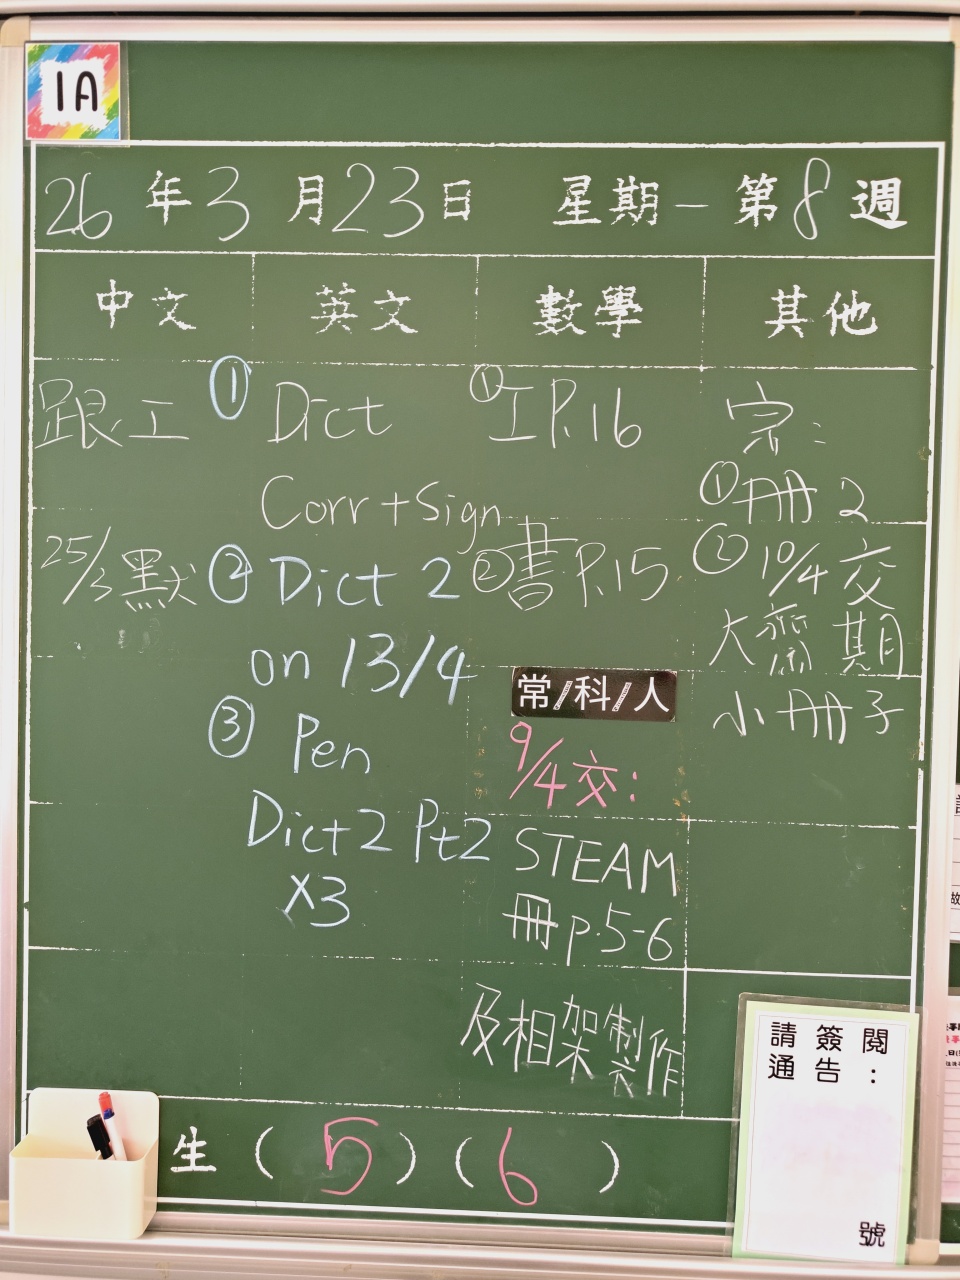 1A
26年3月23日 星期一 第8週
中文 英文 數學 其他
跟工
25/3默
① Dict
Corr + Sign
② Dict 2
on 13/4
③ Pen
Dict 2 Pt2
x3
① 工P.16
② 書P.15
常/科/人
9/4交:
STEAM
冊p.5-6
及相架制作
宗:
①冊2
② 10/4交
大齋期
小冊子
生(5)(6)
請簽閱
通告:
號